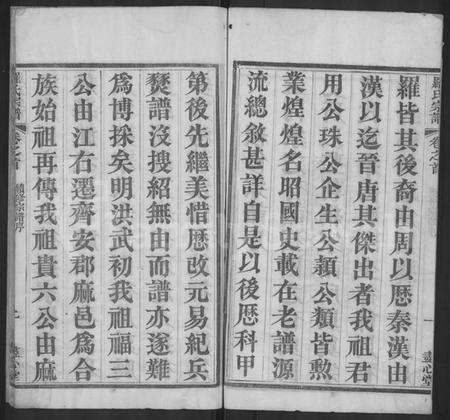 羅氏宗譜 卷之首 一
羅皆其後裔由周以歷秦漢由
漢以迄晉唐其傑出者我祖君
用公珠公企生公纇公類皆勲
業煌煌名昭國史載在老譜源
流總敘甚詳自是以後歷科甲
第後先繼美惜歷改元易紀兵
燹譜没搜紹無由而譜亦遂難
爲博採矣明洪武初我祖福三
公由江右遷齊安郡麻邑爲合
族始祖再傳我祖貴六公由麻
羅氏宗譜 卷之首